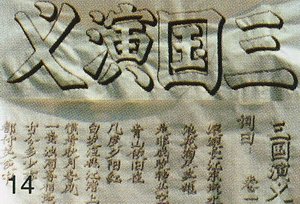 三国演义
三国演义
卷一
词曰
滚滚长江东逝水
浪花淘尽英雄
是非成败转头空
青山依旧在
几度夕阳红
白发渔樵江渚上
惯看秋月春风
一壶浊酒喜相逢
古今多少事
都付笑谈中
14